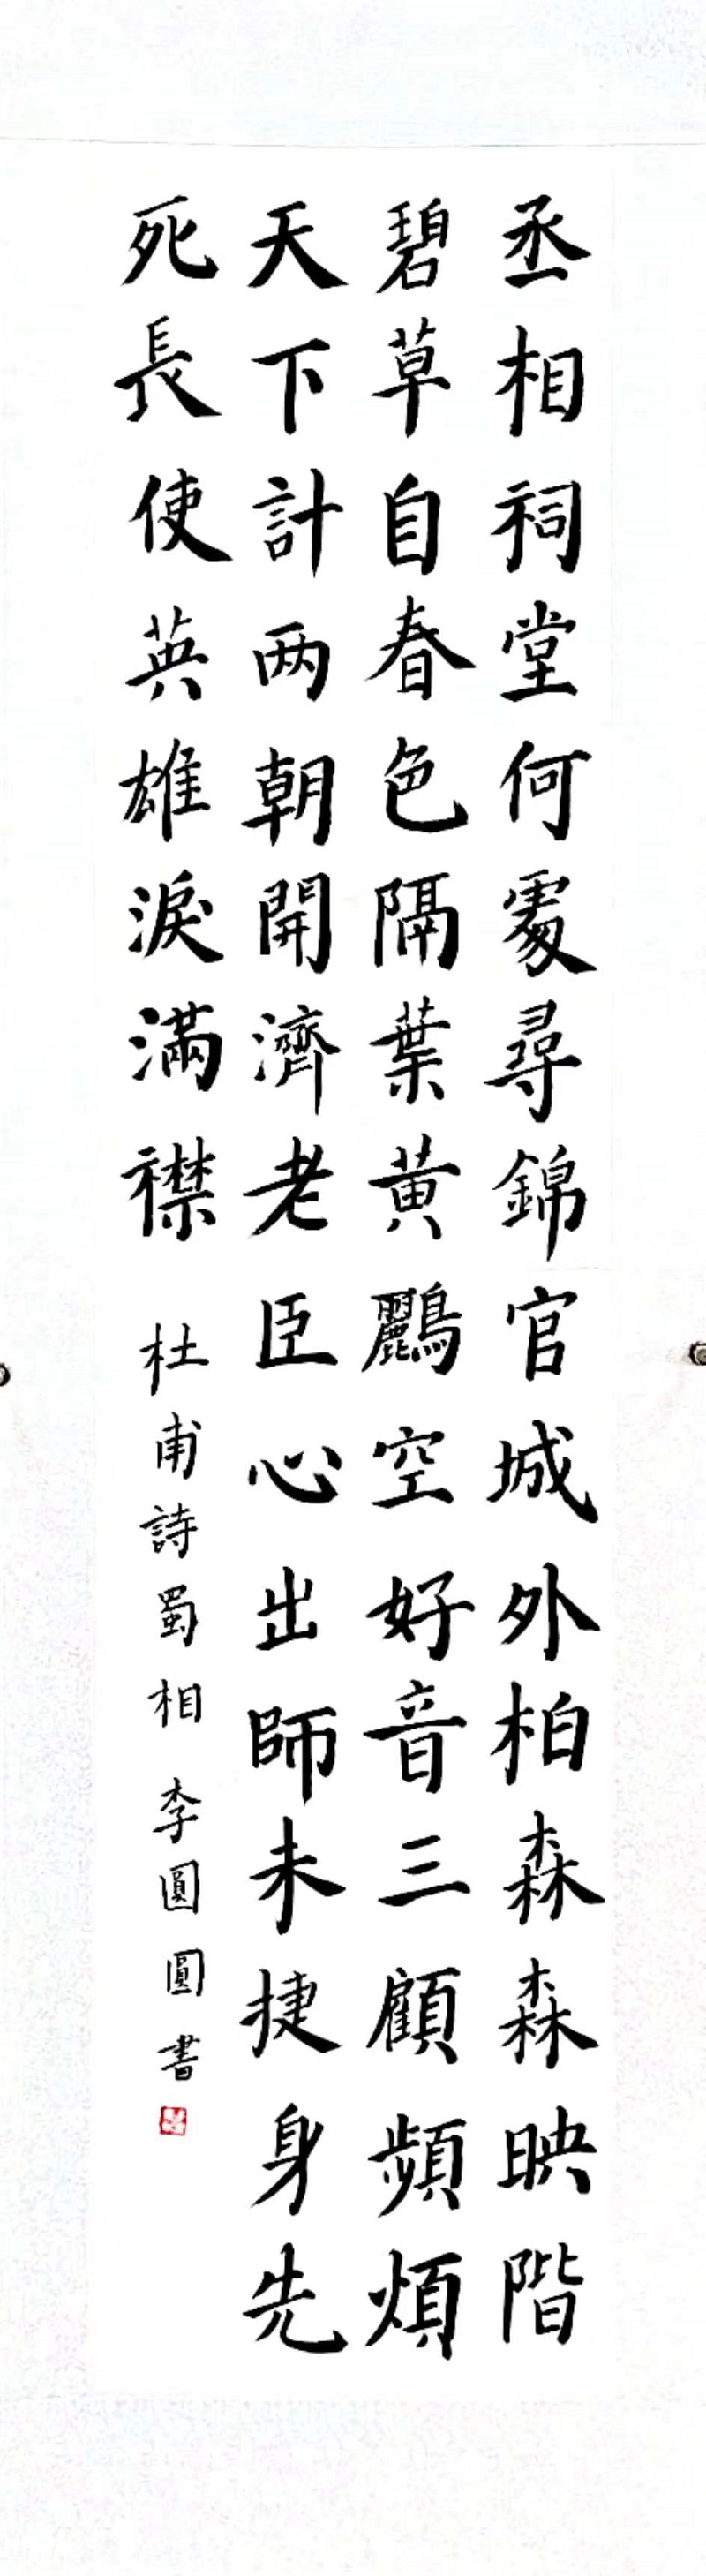 丞相祠堂何處尋錦官城外柏森森映階
碧草自春色隔葉黄鸝空好音三顧頻煩
天下計两朝開濟老臣心出師未捷身先
死長使英雄淚滿襟 杜甫詩蜀相 李圓圓書